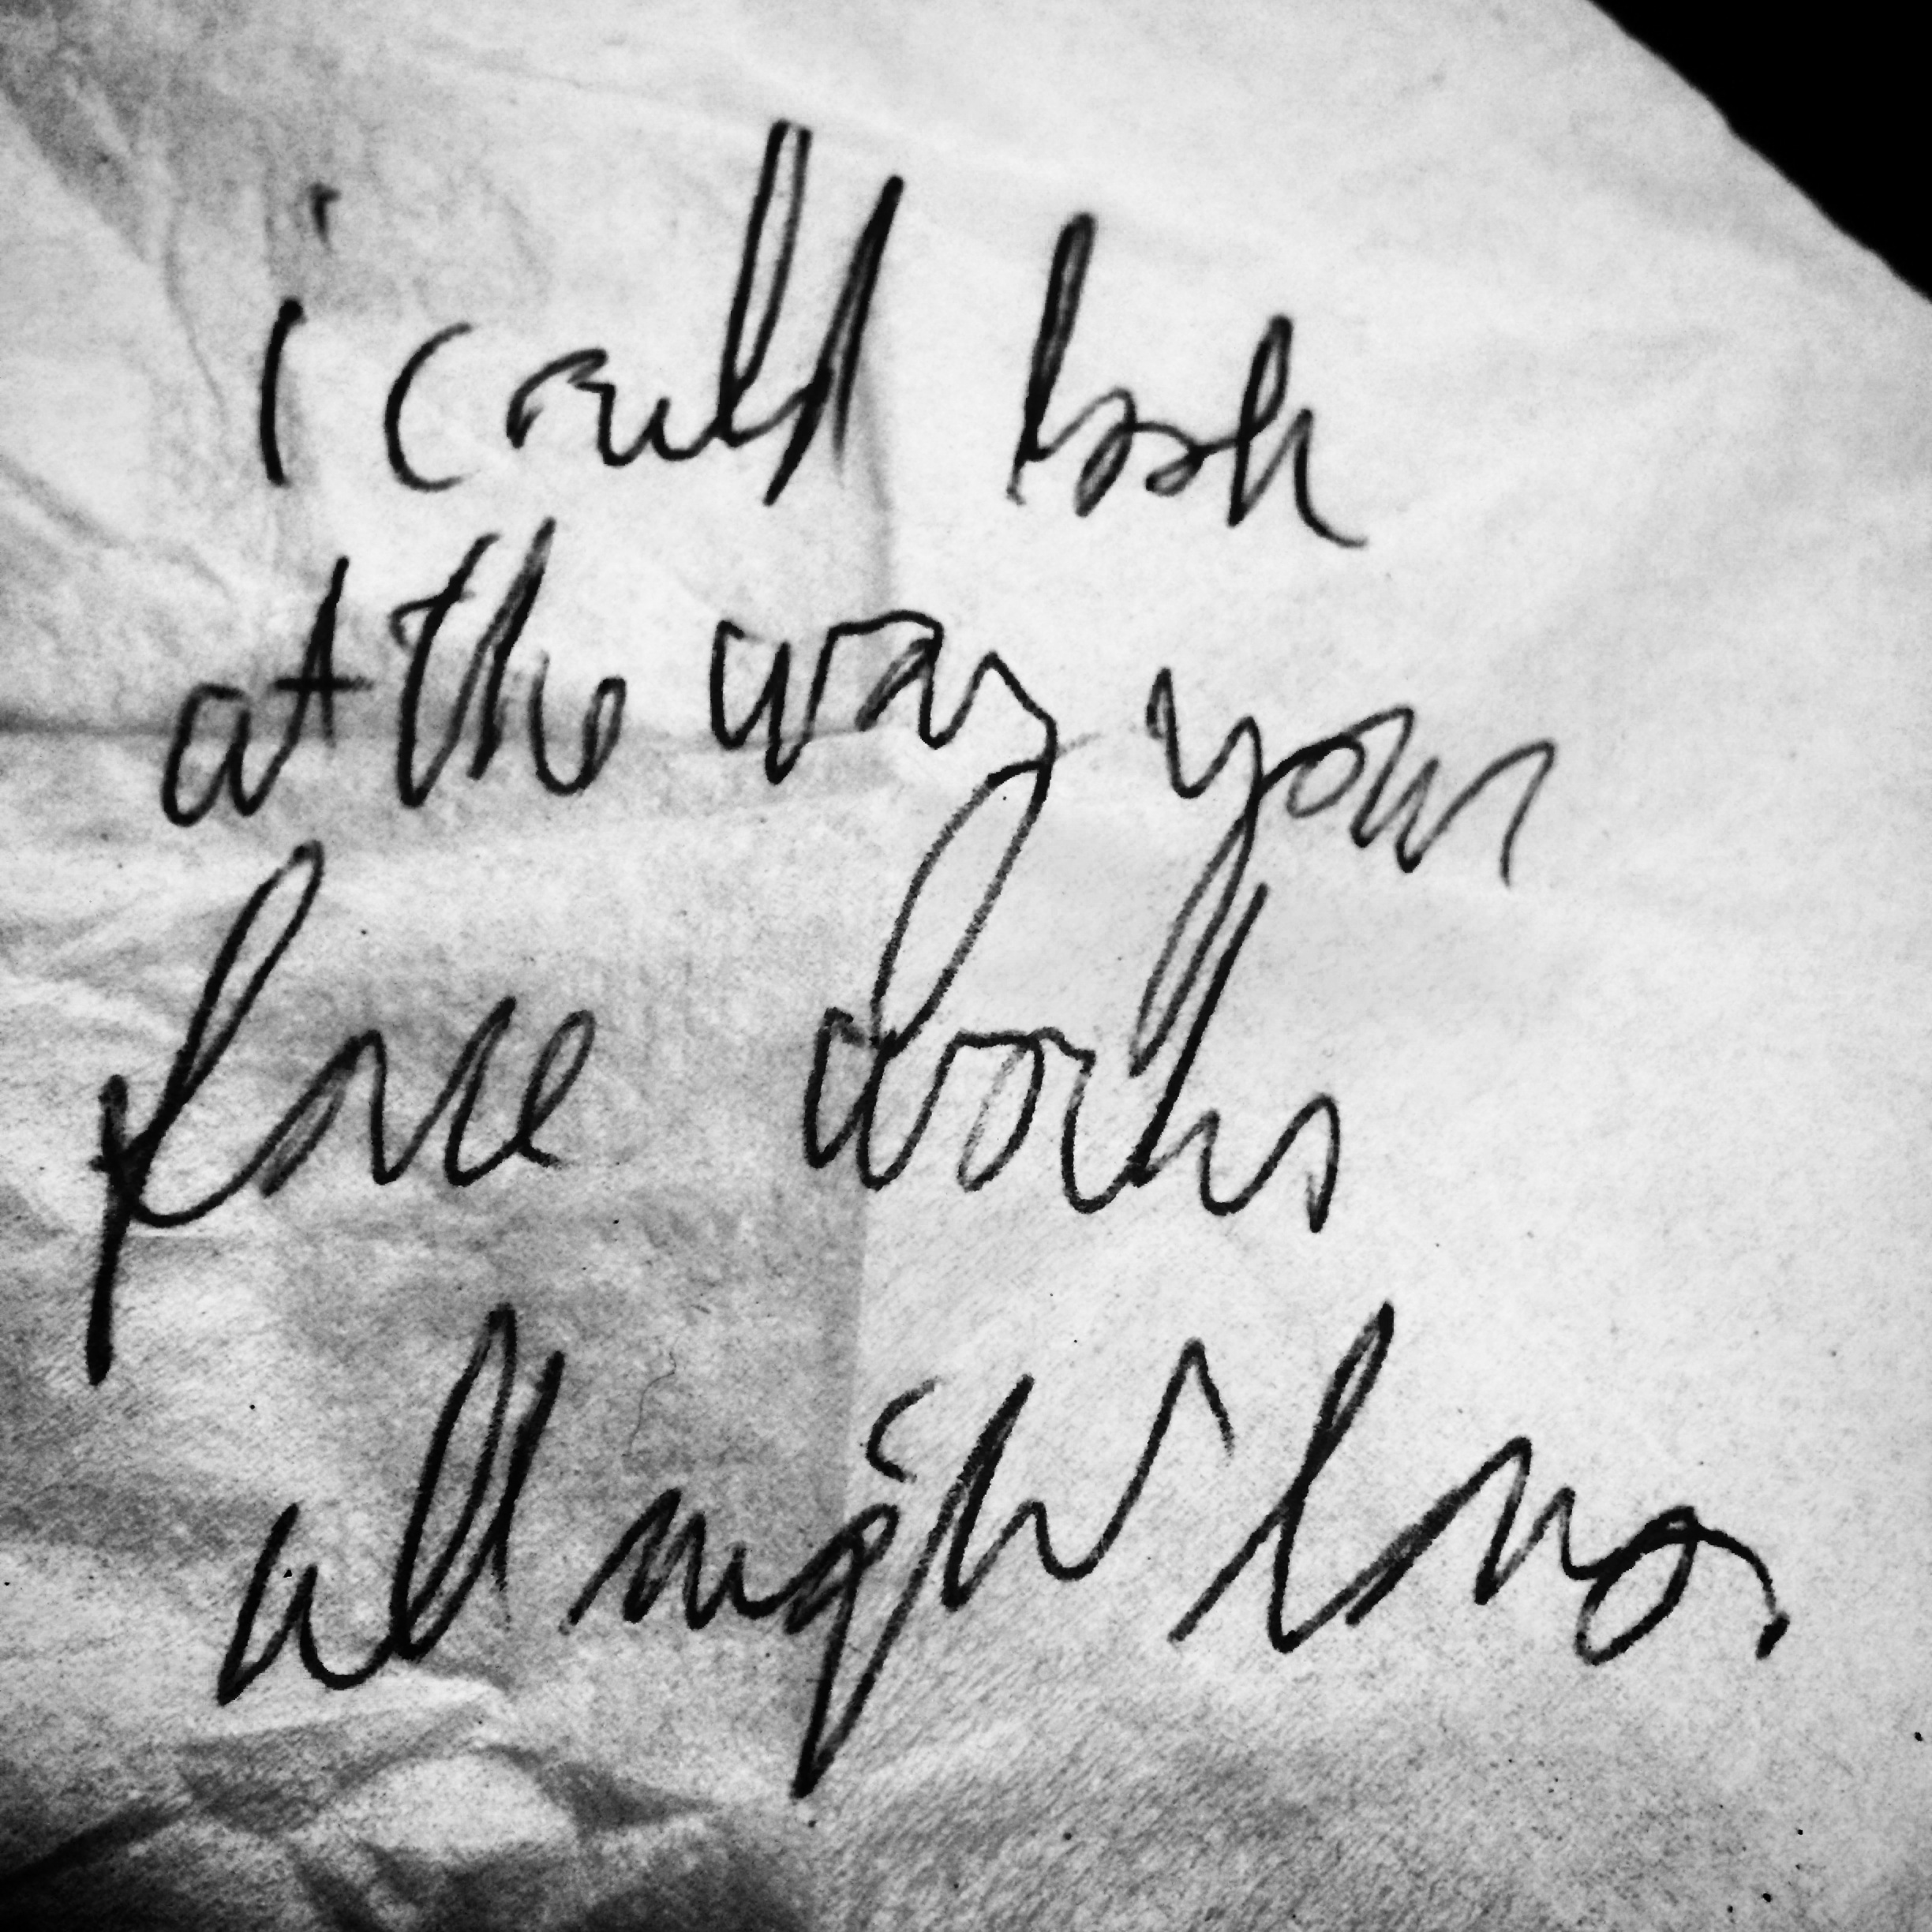 i could look
at the way your
face works
all night long.